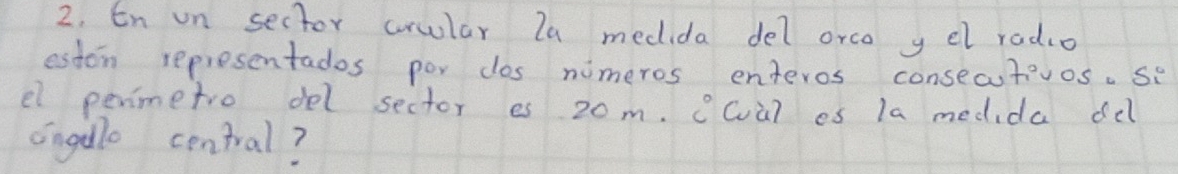 2. En un sector circular la medida del arco y el radio
están representados por dos números enteros consecutivos. Si
el perimetro del sector es 20m. ¿Cuál es la medida del
ángulo central?